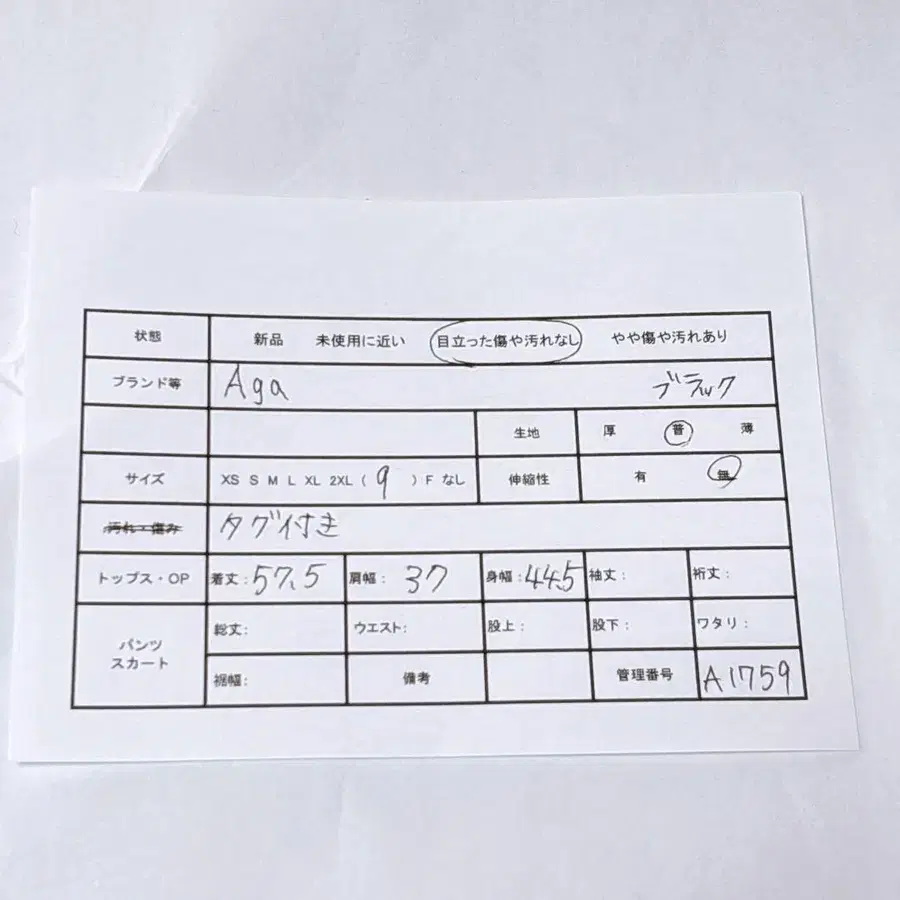 状態 新品 未使用に近い 目立った傷や汚れなし やや傷や汚れあり
ブランド等 Aga ブラック
生地 厚 普 薄
サイズ XS S M L XL 2XL ( 9 ) F なし 伸縮性 有 無
汚れ・傷み タグ付き
トップス・OP 着丈: 57.5 肩幅: 37 身幅: 44.5 袖丈: 裄丈:
パンツ スカート
総丈: ウエスト: 股上: 股下: ワタリ:
裾幅: 備考 管理番号 A1759